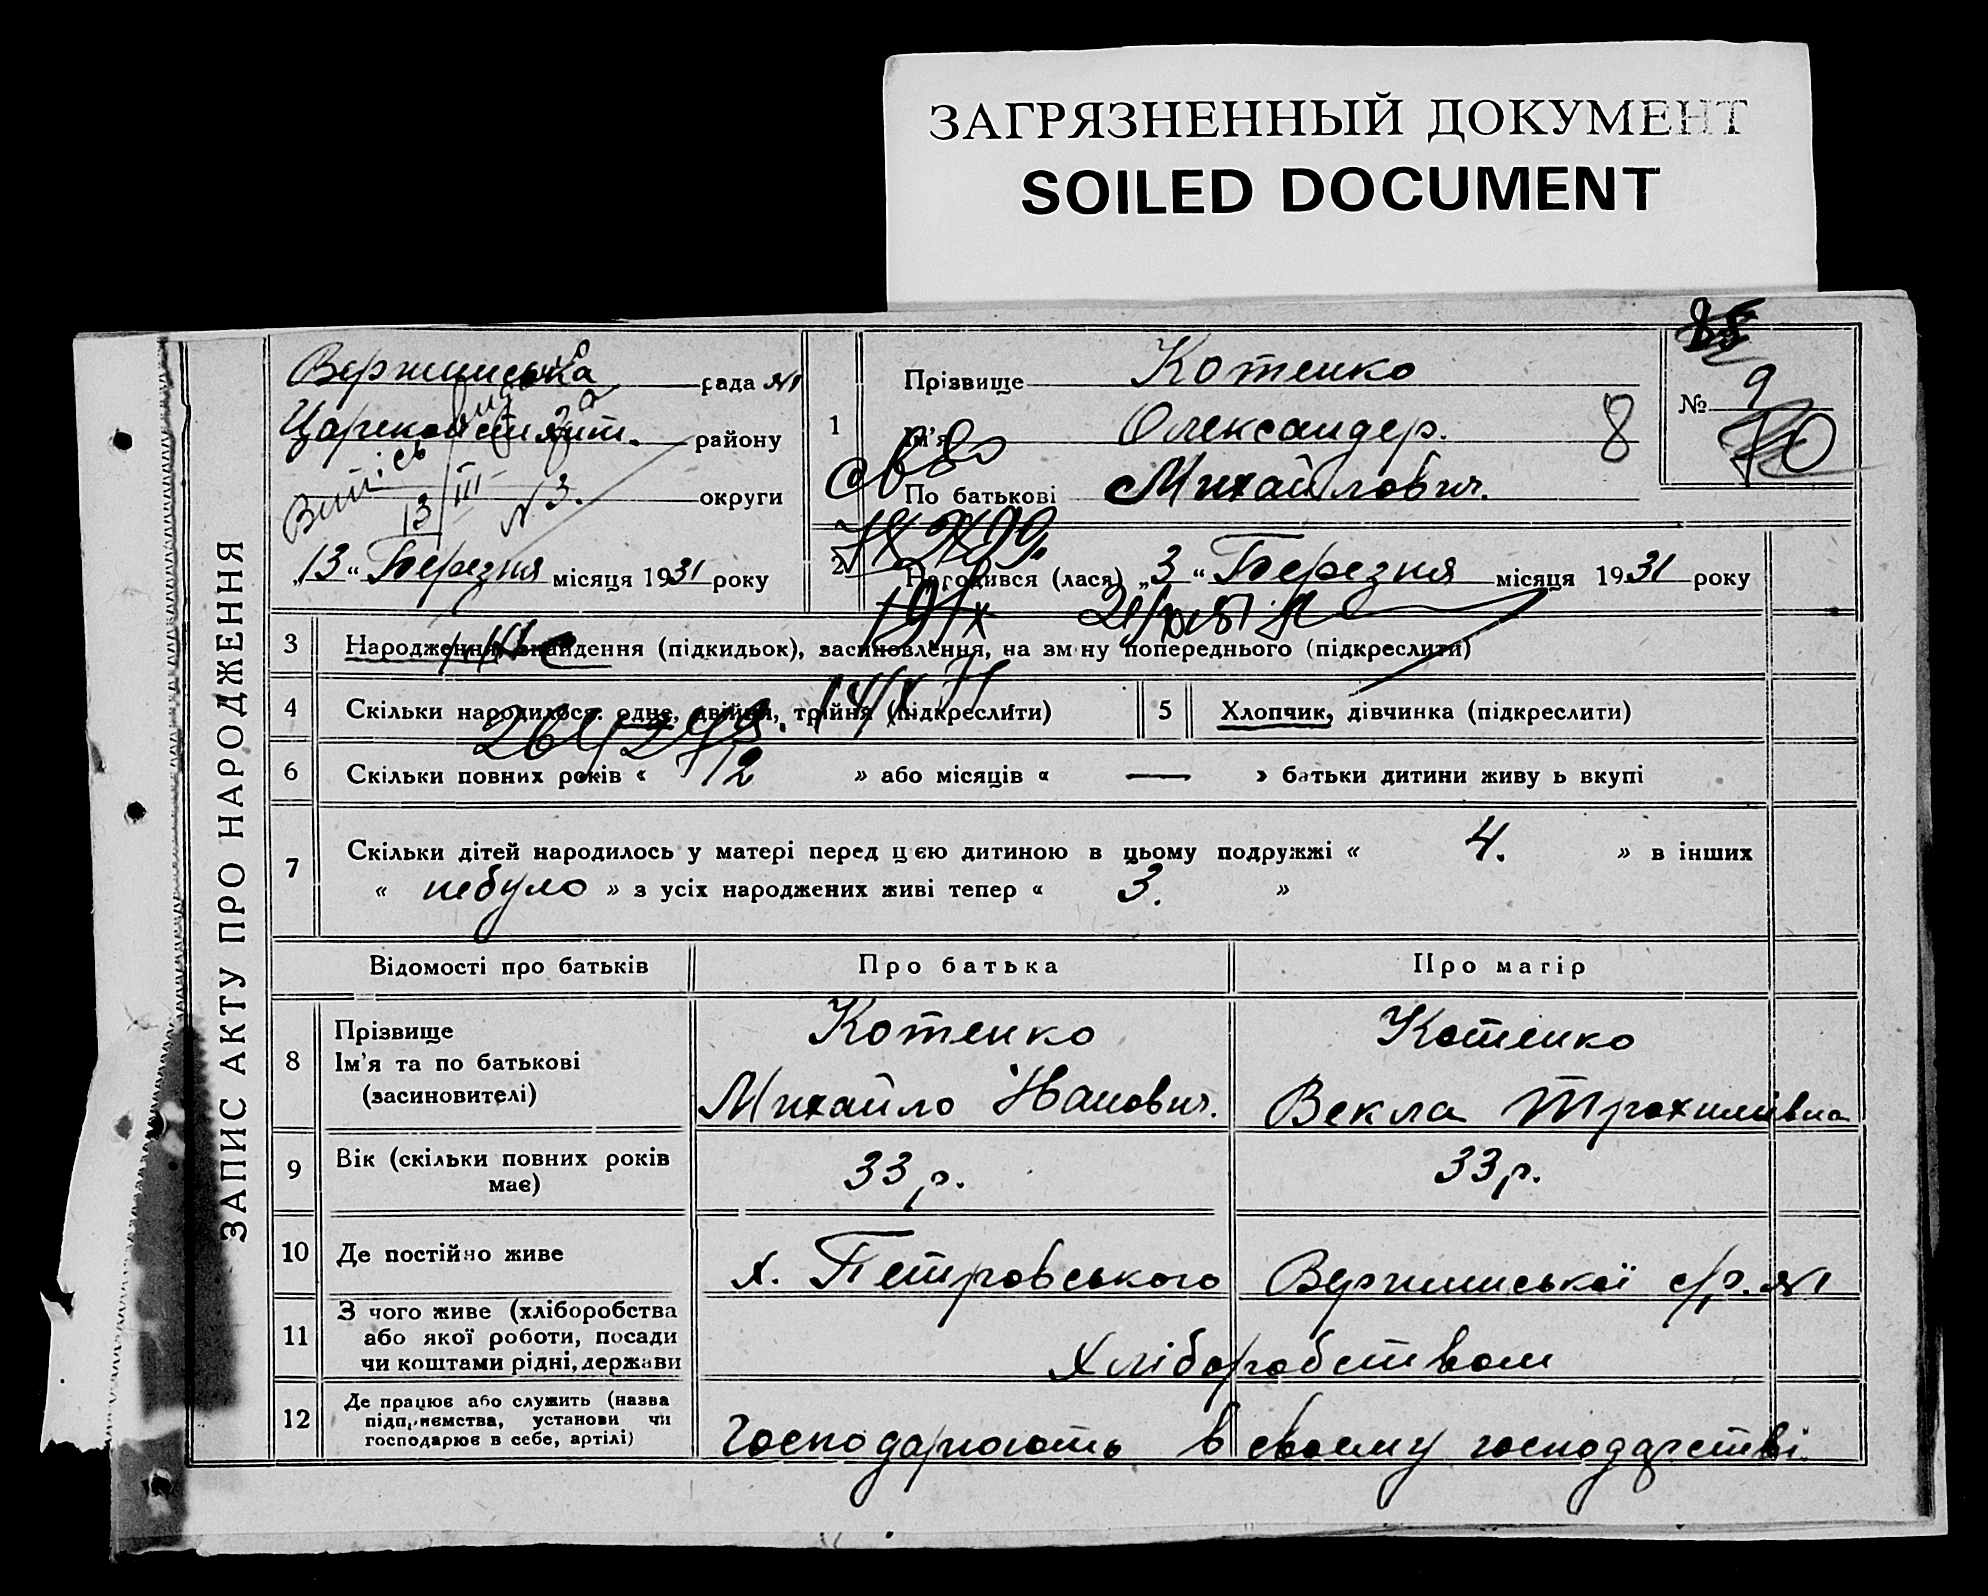 ЗАГРЯЗНЕННЫЙ ДОКУМЕНТ
SOILED DOCUMENT
ЗАПИС АКТУ ПРО НАРОДЖЕННЯ
Вершинська рада №1
Царекостянт. району
округи
Витпісь видана за
13/III № 3.
„13“ Березня місяця 1931 року
1 Прізвище Котенко
Ім'я Олександер.
По батькові Михайлович.
8
№ 9
70
2 Народився (лася) „3“ Березня місяця 1931 року
3 Народження, знайдення (підкидьок), засиновлення, на зміну попереднього (підкреслити)
14/X 71
4 Скільки народилося: одне, двійня, трійня (підкреслити)
5 Хлопчик, дівчинка (підкреслити)
6 Скільки повних років « 12 » або місяців « — » батьки дитини живуть вкупі
7 Скільки дітей народилось у матері перед цією дитиною в цьому подружжі « 4. » в інших
« небуло » з усіх народжених живі тепер « 3. »
Відомості про батьків Про батька Про матір
8 Прізвище Котенко Котенко
Ім'я та по батькові
(засиновителі) Михайло Іванович. Векла Трохимівна
9 Вік (скільки повних років
має) 33 р. 33 р.
10 Де постійно живе х. Петровського Вершинської с/р. №1
11 З чого живе (хліборобства
або якої роботи, посади
чи коштами рідні, держави Хліборобством
12 Де працює або служить (назва
підприємства, установи чи
господарює в себе, артілі) Господарюють в своєму господарстві.